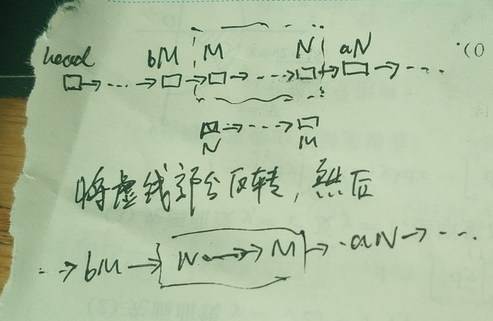 head bM M N aN
□→…→□→□→…→□→□→…
□→…→□
N M
将虚线部分反转,然后
…→bM→[N→M]→aN→…